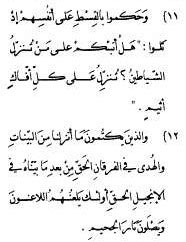 ١١) وَحَكموا بالقِسْطِ عَلى أنفُسِهِم إذْ
كَلموا: "هَلْ أُنَبِّئُكُمْ عَلى مَنْ تَنَزَّلُ
الشياطينُ؟ تَنَزَّلُ على كلِّ أفّاكٍ
أثيمٍ."
١٢) والذينَ يَكتُمُونَ مَا أنزلنا مِنَ البَيِّناتِ
والهُدى في الفرقانِ الحَقِّ مِنْ بَعدِ مَا بَيَّنّاهُ في
الإنجيلِ الحَقِّ أولئكَ يَلعَنُهُمُ اللاعنونَ
وَيَصلَوْنَ نَارَ الجَحيمِ.